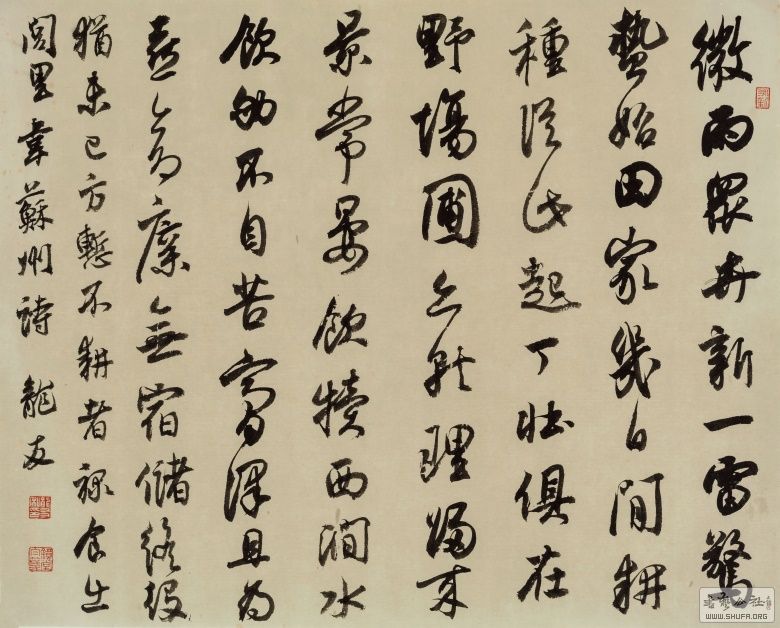 微雨眾卉新一雷驚
蟄始田家幾日閒耕
種從此起丁壯俱在
野塲圃亦就理歸来
景常晏飲犢西澗水
劬不自苦膏澤且為
喜倉廩無宿儲徭役
猶未已方慙不耕者祿食出
閭里韋蘇州詩 龍友
WWW.SHUFA.ORG